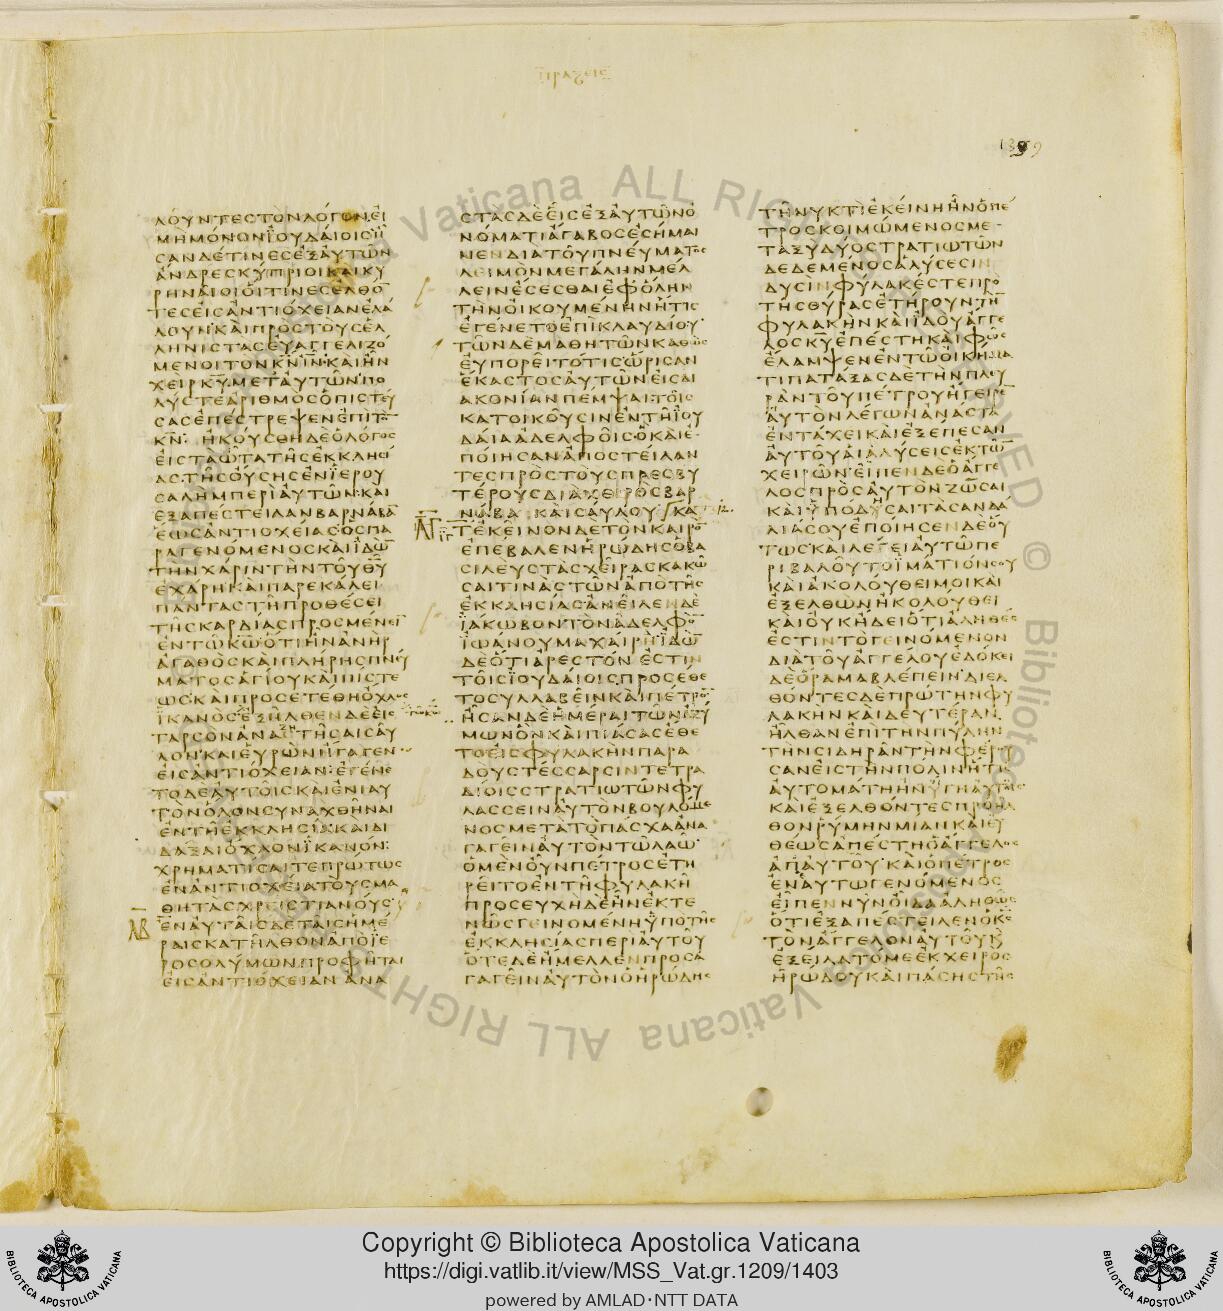 ΛΟΥΝΤΕCΤΟΝΛΟΓΟΝΕΙ
ΜΗΜΟΝΟΝΙΟΥΔΑΙΟΙCΗ
CΑΝΔΕΤΙΝΕCΕΞΑΥΤΩΝ
ΑΝΔΡΕCΚΥΠΡΙΟΙΚΑΙΚΥ
ΡΗΝΑΙΟΙΟΙΤΙΝΕCΕΛΘΟ̅
ΤΕCΕΙCΑΝΤΙΟΧΕΙΑΝΕΛΑ
ΛΟΥΝΚΑΙΠΡΟCΤΟΥCΕΛ
ΛΗΝΙCΤΑCΕΥΑΓΓΕΛΙΖΟ
ΜΕΝΟΙΤΟΝΚ̅Ν̅Ι̅Ν̅ΚΑΙΗΝ
ΧΕΙΡΚ̅Υ̅ΜΕΤΑΥΤΩΝΠΟ
ΛΥCΤΕΑΡΙΘΜΟCΟΠΙCΤΕΥ
CΑCΕΠΕCΤΡΕΨΕΝΕΠΙΤΟ̅
Κ̅Ν̅ ΗΚΟΥCΘΗΔΕΟΛΟΓΟC
ΕΙCΤΑΩΤΑΤΗCΕΚΚΛΗCΙ
ΑCΤΗCΟΥCΗCΕΝΙΕΡΟΥ
CΑΛΗΜΠΕΡΙΑΥΤΩΝΚΑΙ
ΕΞΑΠΕCΤΕΙΛΑΝΒΑΡΝΑΒΑ̅
ΕΩCΑΝΤΙΟΧΕΙΑCΟCΠΑ
ΡΑΓΕΝΟΜΕΝΟCΚΑΙΙΔΩ̅
ΤΗΝΧΑΡΙΝΤΗΝΤΟΥΘ̅Υ̅
ΕΧΑΡΗΚΑΙΠΑΡΕΚΑΛΕΙ
ΠΑΝΤΑCΤΗΠΡΟΘΕCΕΙ
ΤΗCΚΑΡΔΙΑCΠΡΟCΜΕΝΕΙ̅
ΕΝΤΩΚ̅Ω̅ΟΤΙΗΝΑΝΗΡ
ΑΓΑΘΟCΚΑΙΠΛΗΡΗCΠΝΕΥ
ΜΑΤΟCΑΓΙΟΥΚΑΙΠΙCΤΕ
ΩCΚΑΙΠΡΟCΕΤΕΘΗΟΧΛΟC
ΙΚΑΝΟCΕΞΗΛΘΕΝΔΕΕΙC
ΤΑΡCΟΝΑΝΑΖΤΗCΑΙCΑΥ
ΛΟΝΚΑΙΕΥΡΩΝΗΓΑΓΕΝ
ΕΙCΑΝΤΙΟΧΕΙΑΝΕΓΕΝΕ
ΤΟΔΕΑΥΤΟΙCΚΑΙΕΝΙΑΥ
ΤΟΝΟΛΟΝCΥΝΑΧΘΗΝΑΙ
ΕΝΤΗΕΚΚΛΗCΙΑΚΑΙΔΙ
ΔΑΞΑΙΟΧΛΟΝΙΚΑΝΟΝ
ΧΡΗΜΑΤΙCΑΙΤΕΠΡΩΤΩC
ΕΝΑΝΤΙΟΧΕΙΑΤΟΥCΜΑ
ΘΗΤΑCΧΡΕΙCΤΙΑΝΟΥC
ΛΒ
ΕΝΑΥΤΑΙCΔΕΤΑΙCΗΜΕ
ΡΑΙCΚΑΤΗΛΘΟΝΑΠΟΙΕ
ΡΟCΟΛΥΜΩΝΠΡΟΦΗΤΑΙ
ΕΙCΑΝΤΙΟΧΕΙΑΝΑΝΑ
CΤΑCΔΕΕΙCΕΞΑΥΤΩΝΟ
ΝΟΜΑΤΙΑΓΑΒΟCΕCΗΜΑΙ
ΝΕΝΔΙΑΤΟΥΠΝΕΥΜΑΤΟC
ΛΕΙΜΟΝΜΕΓΑΛΗΝΜΕΛ
ΛΕΙΝΕCΕCΘΑΙΕΦΟΛΗΝ
ΤΗΝΟΙΚΟΥΜΕΝΗΝΗΤΙC
ΕΓΕΝΕΤΟΕΠΙΚΛΑΥΔΙΟΥ
ΤΩΝΔΕΜΑΘΗΤΩΝΚΑΘΩC
ΕΥΠΟΡΕΙΤΟΤΙCΩΡΙCΑΝ
ΕΚΑCΤΟCΑΥΤΩΝΕΙCΔΙ
ΑΚΟΝΙΑΝΠΕΜΨΑΙΤΟΙC
ΚΑΤΟΙΚΟΥCΙΝΕΝΤΗΙΟΥ
ΔΑΙΑΑΔΕΛΦΟΙCΟΚΑΙΕ
ΠΟΙΗCΑΝΑΠΟCΤΕΙΛΑΝ
ΤΕCΠΡΟCΤΟΥCΠΡΕCΒΥ
ΤΕΡΟΥCΔΙΑΧΕΙΡΟCΒΑΡ
ΝΑΒΑΚΑΙCΑΥΛΟΥΚΑ
ΛΓ
ΤΕΚΕΙΝΟΝΔΕΤΟΝΚΑΙΡΟ̅
ΕΠΕΒΑΛΕΝΗΡΩΔΗCΟΒΑ
CΙΛΕΥCΤΑCΧΕΙΡΑCΚΑΚΩ
CΑΙΤΙΝΑCΤΩΝΑΠΟΤΗC
ΕΚΚΛΗCΙΑCΑΝΕΙΛΕΝΔΕ
ΙΑΚΩΒΟΝΤΟΝΑΔΕΛΦΟ̅
ΙΩΑΝΟΥΜΑΧΑΙΡΗΙΔΩ̅
ΔΕΟΤΙΑΡΕCΤΟΝΕCΤΙΝ
ΤΟΙCΙΟΥΔΑΙΟΙCΠΡΟCΕΘΕ
ΤΟCΥΛΛΑΒΕΙΝΚΑΙΠΕΤΡΟ̅
ΗCΑΝΔΕΗΜΕΡΑΙΤΩΝΑΖΥ
ΜΩΝΟΝΚΑΙΠΙΑCΑCΕΘΕ
ΤΟΕΙCΦΥΛΑΚΗΝΠΑΡΑ
ΔΟΥCΤΕCCΑΡCΙΝΤΕΤΡΑ
ΔΙΟΙCCΤΡΑΤΙΩΤΩΝΦΥ
ΛΑCCΕΙΝΑΥΤΟΝΒΟΥΛΟΜΕ
ΝΟCΜΕΤΑΤΟΠΑCΧΑΑΝΑ
ΓΑΓΕΙΝΑΥΤΟΝΤΩΛΑΩ
ΟΜΕΝΟΥΝΠΕΤΡΟCΕΤΗ
ΡΕΙΤΟΕΝΤΗΦΥΛΑΚΗ
ΠΡΟCΕΥΧΗΔΕΗΝΕΚΤΕ
ΝΩCΓΕΙΝΟΜΕΝΗΥΠΟΤΗC
ΕΚΚΛΗCΙΑCΠΕΡΙΑΥΤΟΥ
ΟΤΕΔΕΗΜΕΛΛΕΝΠΡΟCΑ
ΓΑΓΕΙΝΑΥΤΟΝΟΗΡΩΔΗC
ΤΗΝΥΚΤΙΕΚΕΙΝΗΗΝΟΠΕ
ΤΡΟCΚΟΙΜΩΜΕΝΟCΜΕ
ΤΑΞΥΔΥΟCΤΡΑΤΙΩΤΩΝ
ΔΕΔΕΜΕΝΟCΑΛΥCΕCΙΝ
ΔΥCΙΝΦΥΛΑΚΕCΤΕΠΡΟ
ΤΗCΘΥΡΑCΕΤΗΡΟΥΝΤΗ̅
ΦΥΛΑΚΗΝΚΑΙΙΔΟΥΑΓΓΕ
ΛΟCΚ̅Υ̅ΕΠΕCΤΗΚΑΙΦΩC
ΕΛΑΜΨΕΝΕΝΤΩΟΙΚΗΜΑ
ΤΙΠΑΤΑΞΑCΔΕΤΗΝΠΛΕΥ
ΡΑΝΤΟΥΠΕΤΡΟΥΗΓΕΙΡΕ̅
ΑΥΤΟΝΛΕΓΩΝΑΝΑCΤΑ
ΕΝΤΑΧΕΙΚΑΙΕΞΕΠΕCΑΝ
ΑΥΤΟΥΑΙΑΛΥCΕΙCΕΚΤΩ̅
ΧΕΙΡΩΝΕΙΠΕΝΔΕΟΑΓΓΕ
ΛΟCΠΡΟCΑΥΤΟΝΖΩCΑΙ
ΚΑΙΥΠΟΔΗCΑΙΤΑCΑΝΔΑ
ΛΙΑCΟΥΕΠΟΙΗCΕΝΔΕΟΥ
ΤΩCΚΑΙΛΕΓΕΙΑΥΤΩΠΕ
ΡΙΒΑΛΟΥΤΟΙΜΑΤΙΟΝCΟΥ
ΚΑΙΑΚΟΛΟΥΘΕΙΜΟΙΚΑΙ
ΕΞΕΛΘΩΝΗΚΟΛΟΥΘΕΙ
ΚΑΙΟΥΚΗΔΕΙΟΤΙΑΛΗΘΕC
ΕCΤΙΝΤΟΓΕΙΝΟΜΕΝΟΝ
ΔΙΑΤΟΥΑΓΓΕΛΟΥΕΔΟΚΕΙ
ΔΕΟΡΑΜΑΒΛΕΠΕΙΝΔΙΕΛ
ΘΟΝΤΕCΔΕΠΡΩΤΗΝΦΥ
ΛΑΚΗΝΚΑΙΔΕΥΤΕΡΑΝ
ΗΛΘΑΝΕΠΙΤΗΝΠΥΛΗΝ
ΤΗΝCΙΔΗΡΑΝΤΗΝΦΕΡΟΥ
CΑΝΕΙCΤΗΝΠΟΛΙΝΗΤΙC
ΑΥΤΟΜΑΤΗΗΝΥΓΗΑΥΤΟΙC
ΚΑΙΕΞΕΛΘΟΝΤΕCΠΡΟΗΛ
ΘΟΝΡΥΜΗΝΜΙΑΝΚΑΙΕΥ
ΘΕΩCΑΠΕCΤΗΟΑΓΓΕΛΟC
ΑΠΑΥΤΟΥΚΑΙΟΠΕΤΡΟC
ΕΝΑΥΤΩΓΕΝΟΜΕΝΟC
ΕΙΠΕΝΝΥΝΟΙΔΑΑΛΗΘΩC
ΟΤΙΕΞΑΠΕCΤΕΙΛΕΝΟΚ̅C̅
ΤΟΝΑΓΓΕΛΟΝΑΥΤΟΥΚ̅
ΕΞΕΙΛΑΤΟΜΕΕΚΧΕΙΡΟC
ΗΡΩΔΟΥΚΑΙΠΑCΗCΤΗC
Copyright © Biblioteca Apostolica Vaticana
https://digi.vatlib.it/view/MSS_Vat.gr.1209/1403
powered by AMLAD·NTT DATA
BIBLIOTECA APOSTOLICA VATICANA
BIBLIOTECA APOSTOLICA VATICANA